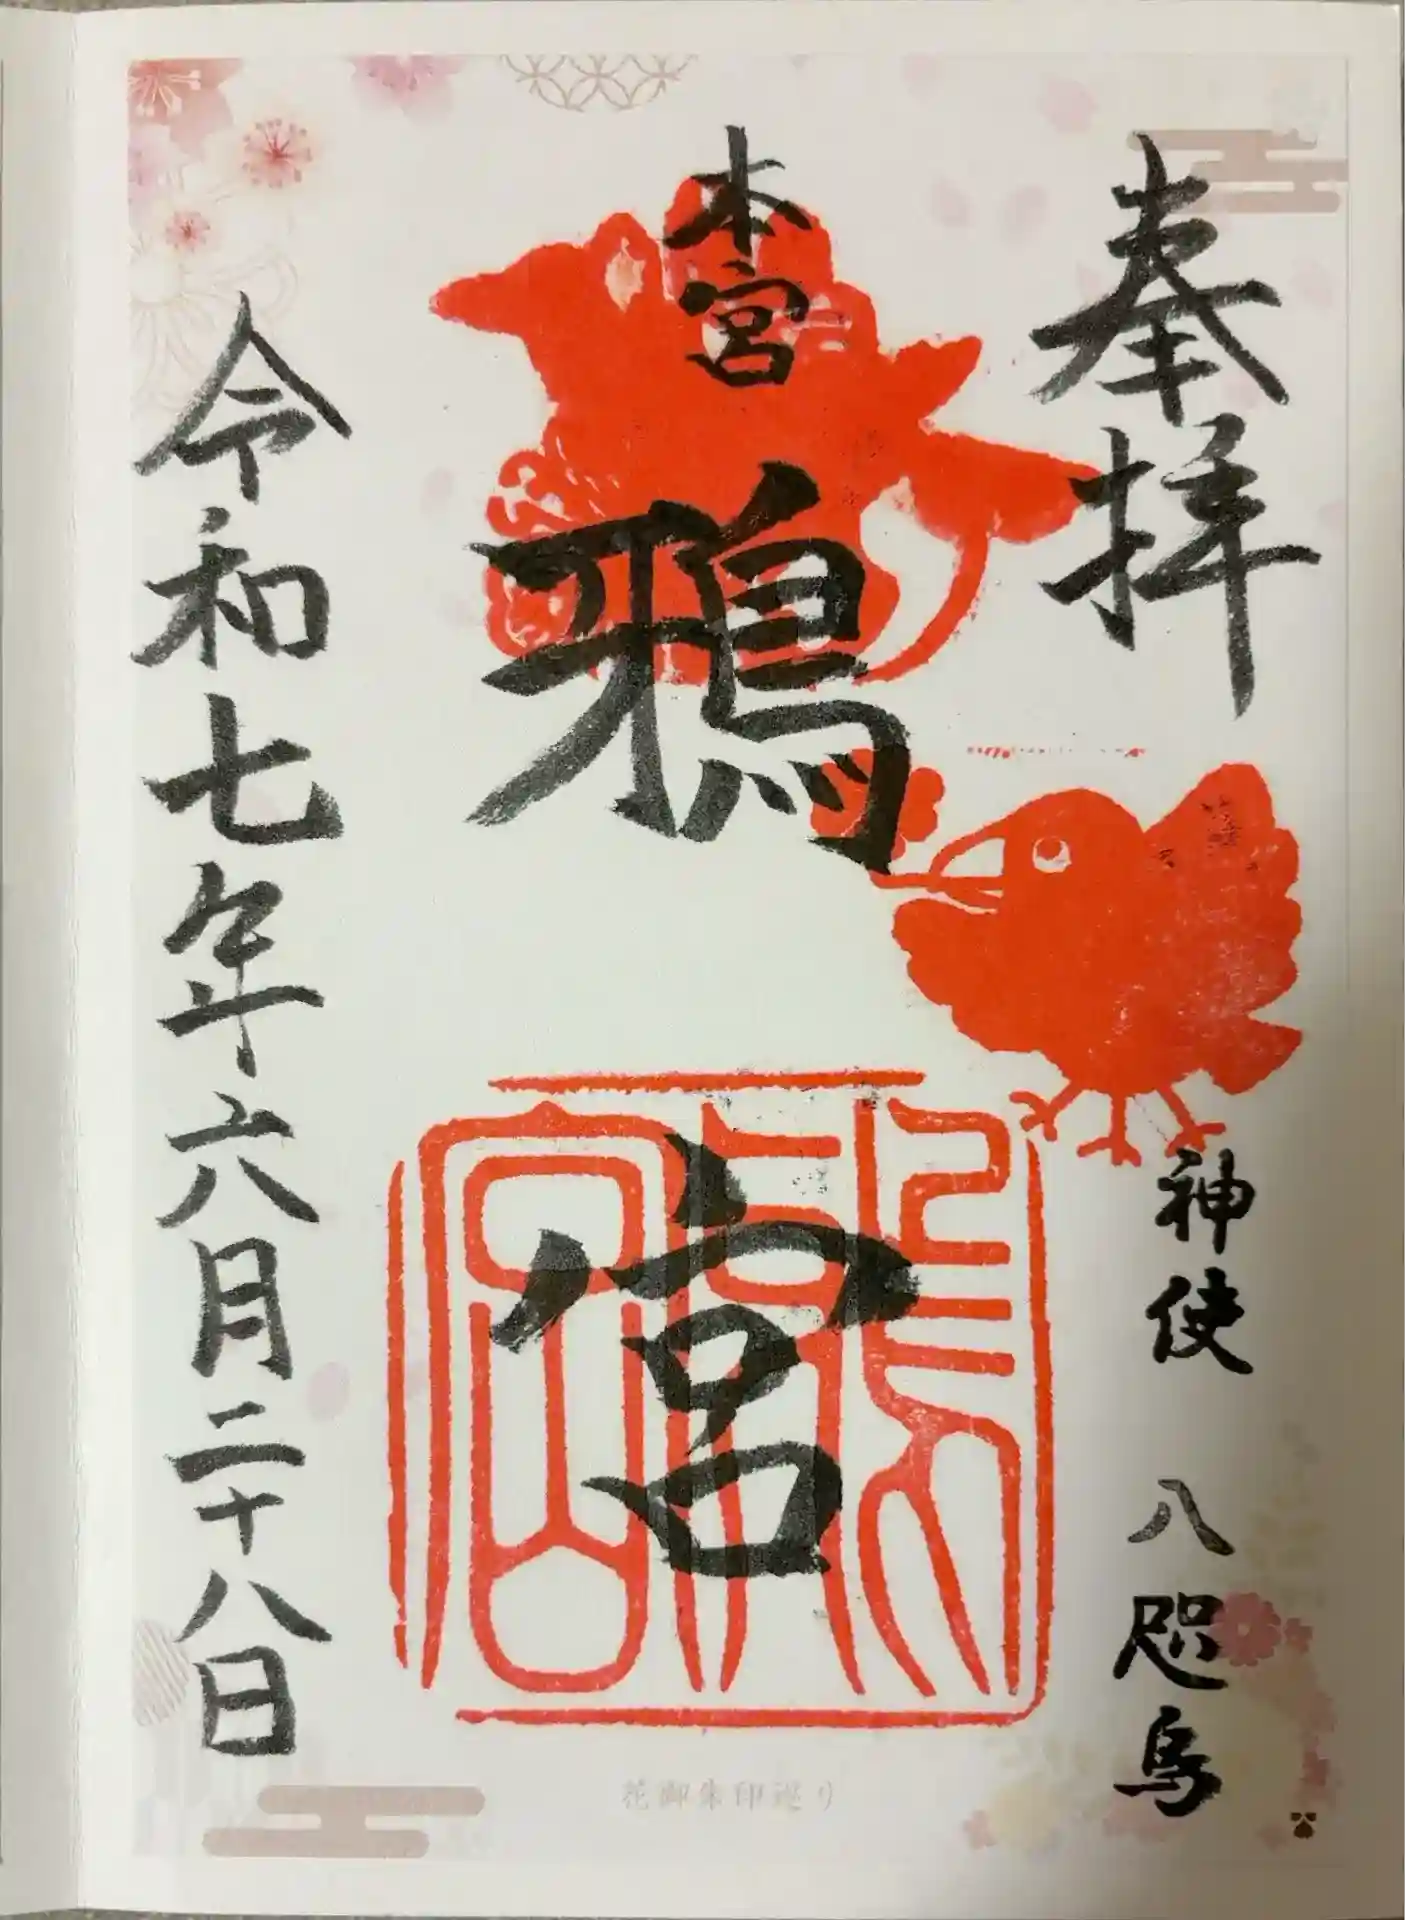 奉拝
神使 八咫烏
本宮
鴉宮
令和七年六月二十八日
花御朱印巡り